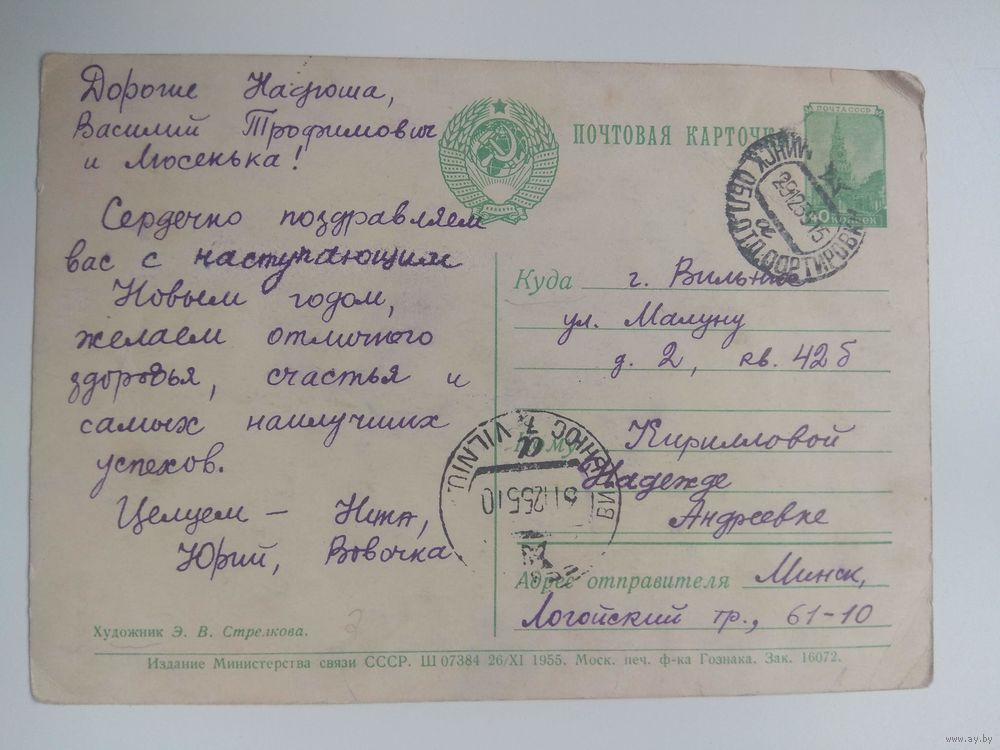 Дорогие Надюша,
Василий Трофимович
и Люсенька!
Сердечно поздравляем
вас с наступающим
Новым годом,
желаем отличного
здоровья, счастья и
самых наилучших
успехов.
Целуем – Нина,
Юрий, Вовочка
Художник Э. В. Стрелкова.
ПОЧТОВАЯ КАРТОЧКА
ПОЧТА СССР
40 КОПЕЕК
МИНСК ОБЛ. ОТД. СОРТИРОВК
291255 15
а
Куда г. Вильнюс
ул. Малуну
д. 2, кв. 42б
Кому Кирилловой
Надежде
Андреевне
ВИЛЬНЮС 7 VILNIU
311255 10
Адрес отправителя Минск,
Логойский тр., 61-10
Издание Министерства связи СССР. Ш 07384 26/XI 1955. Моск. печ. ф-ка Гознака. Зак. 16072.
www.ay.by